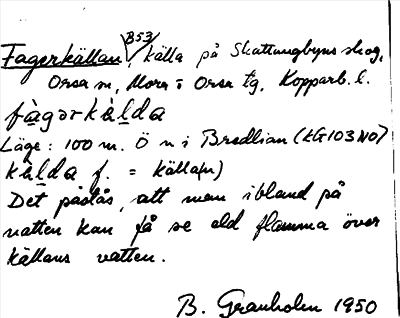 B53
Fagerkällan, källa på Skattungbyns skog,
Orsa sn, Mora o Orsa tg, Kopparb. l.
fàgərkä̀lda
Läge: 100 m. Ö n i Bredlian (kG103NO)
kälda f. = källa(n)
Det påstås, att man ibland på
natten kan få se eld flamma över
källans vatten.
B. Granholm 1950